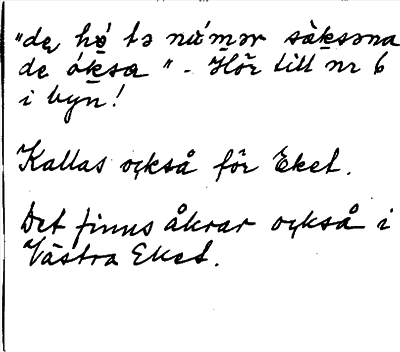 "dę hǿ tə nú̵mər sàksəna
de óksa" - Hör till nr 6
i byn!
Kallas också för Eket.
Det finns åkrar också i
Västra Eket.